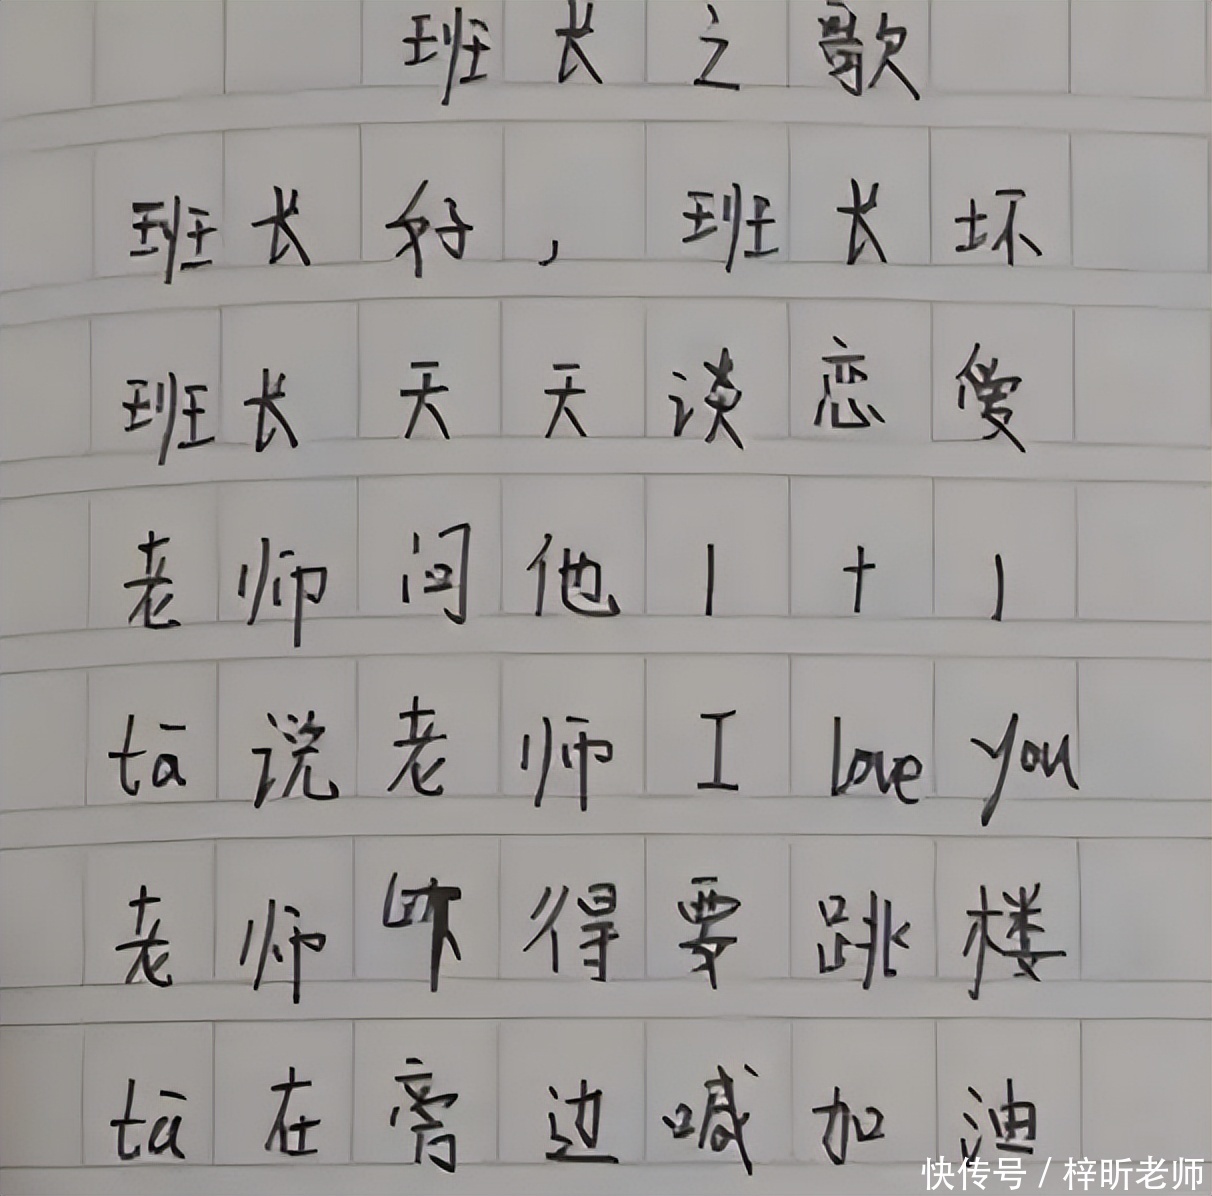 班长之歌
班长好，班长坏
班长天天谈恋爱
老师问他1+1
tā说老师I love you
老师 得要跳楼
tā在旁边喊加油
快传号/梓昕老师